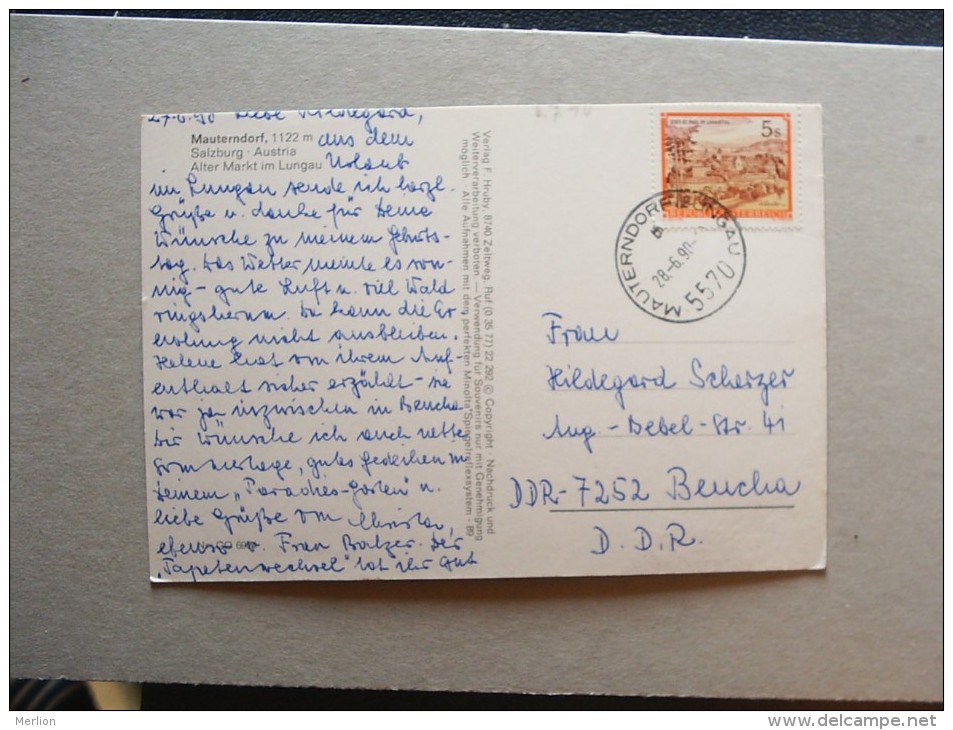 27.6.90 Liebe Hildegard,
Mauterndorf, 1122 m
Salzburg · Austria
Alter Markt im Lungau
aus dem
Urlaub
im Lungau sende ich herzl.
Grüße u. danke für Deine
Wünsche zu meinem Geburts-
tag. Das Wetter meinte es son-
nig – gute Luft u. viel Wald
ringsherum. Da kann die Er-
holung nicht ausbleiben.
Helene hat von ihrem Auf-
enthalt sicher erzählt – sie
war ja inzwischen in Beucha.
Dir wünsche ich auch nette
Sommertage, gutes Gedeihen in
Deinem „Paradies-Garten" u.
liebe Grüße von Christa,
ebenso v. Frau Balzer. Der
„Tapetenwechsel" tat ihr gut
Verlag F. Hruby, 8740 Zeltweg, Ruf (0 35 77) 22 292 © Copyright - Nachdruck und
Weiterverarbeitung verboten. — Verwendung für Souvenirs nur mit Genehmigung
möglich - Alle Aufnahmen mit dem perfekten Minolta Spiegelreflexsystem - 89
5s
REPUBLIK ÖSTERREICH
MAUTERNDORF, LUNGAU
28.-6.90
5570
Frau
Hildegard Scherzer
Aug.-Bebel-Str. 41
DDR-7252 Beucha
D.D.R.
Merlion
www.delcampe.net